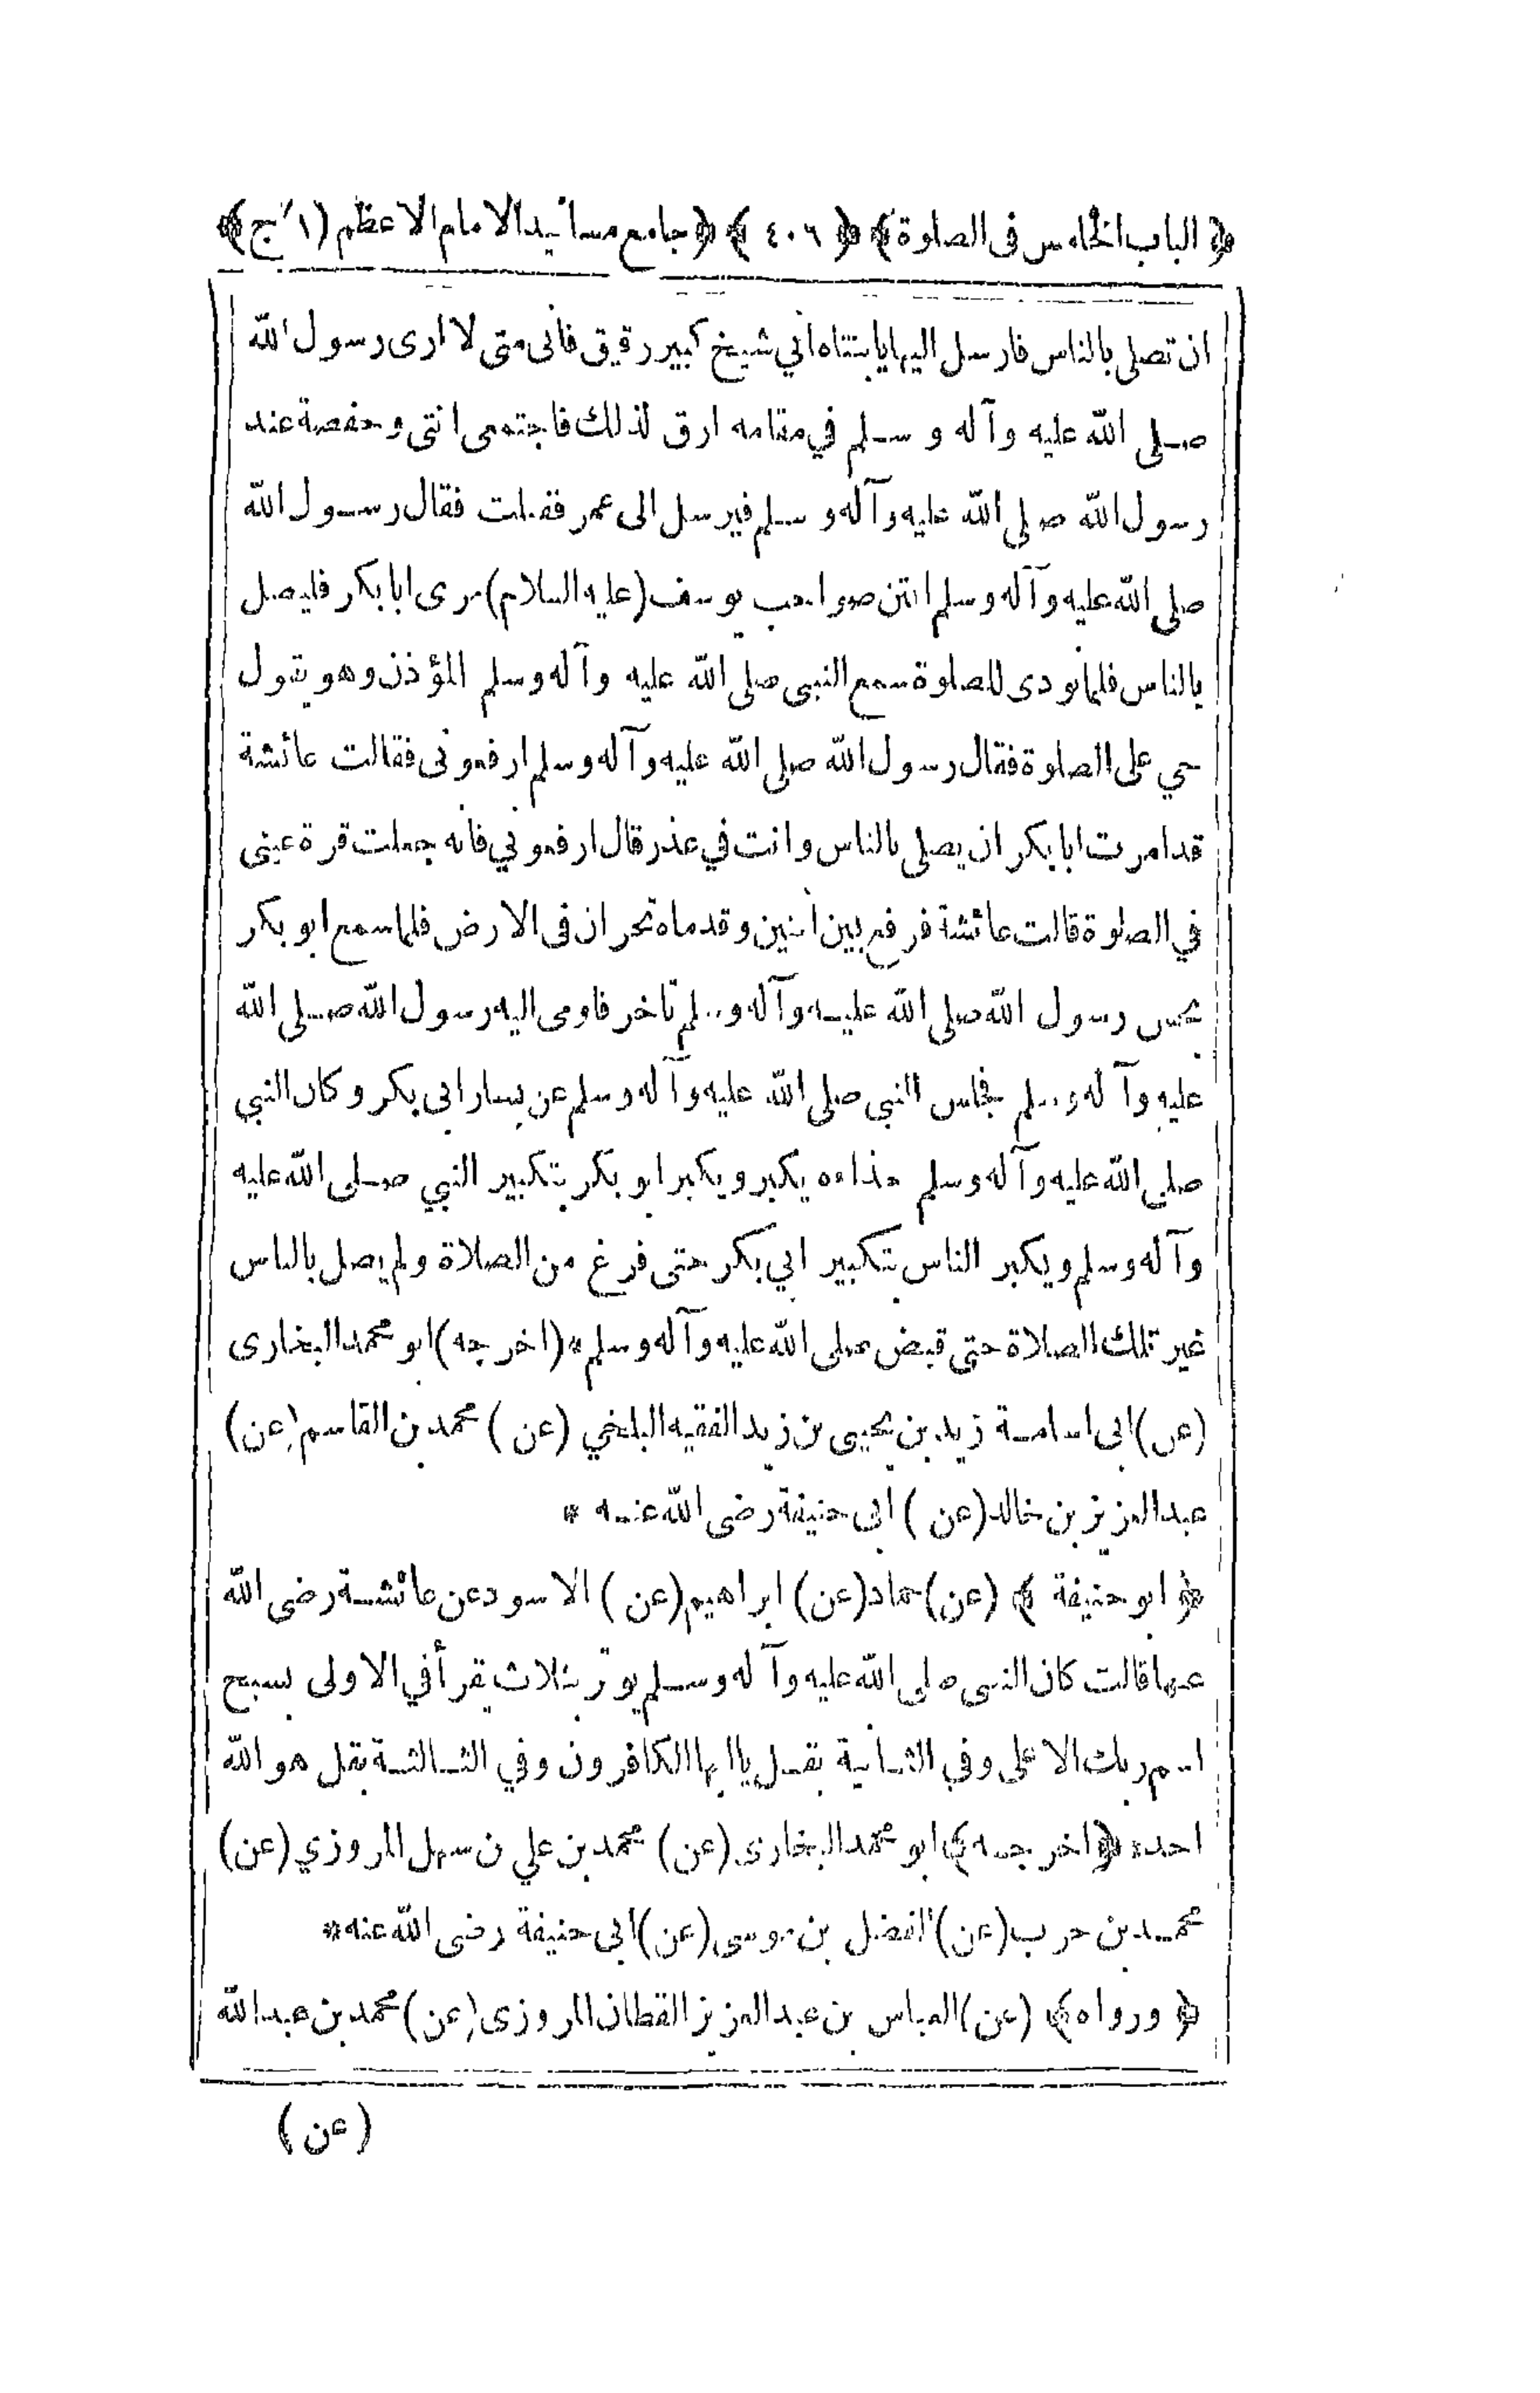 ﴿ الباب الخامس فى الصلوة ﴾ ﴿ ٤٠٦ ﴾ ﴿ جامع مسانيد الامام الاعظم (١ ج) ﴾
ان تصلى بالناس فارسل اليها يا بنتاه اني شيخ كبير رقيق فانى متى لا ارى رسول الله
صلى الله عليه وآله وسلم في مقامه ارق لذلك فاجتمعى انتى وحفصة عند
رسول الله صلى الله عليه وآله وسلم فيرسل الى عمر ففعلت فقال رسول الله
صلى الله عليه وآله وسلم انتن صواحب يوسف (عليه السلام) مرى ابا بكر فليصل
بالناس فلما نودى للصلوة سمع النبى صلى الله عليه وآله وسلم المؤذن وهو يقول
حي على الصلوة فقال رسول الله صلى الله عليه وآله وسلم ارفعونى فقالت عائشة
قد امرت ابا بكر ان يصلى بالناس وانت في عذر قال ارفعوني فانه جعلت قرة عينى
في الصلوة قالت عائشة فرفع بين اثنين وقدماه تخران فى الارض فلما سمع ابو بكر
بحس رسول الله صلى الله عليه وآله وسلم تاخر فاومى اليه رسول الله صلى الله
عليه وآله وسلم فجلس النبي صلى الله عليه وآله وسلم عن يسار ابى بكر وكان النبي
صلى الله عليه وآله وسلم حذاءه يكبر ويكبر ابو بكر بتكبير النبي صلى الله عليه
وآله وسلم ويكبر الناس بتكبير ابي بكر حتى فرغ من الصلاة ولم يصل بالناس
غير تلك الصلاة حتى قبض صلى الله عليه وآله وسلم * (اخرجه) ابو محمد البخارى
(عن) ابى اسامة زيد بن يحيى بن زيد الفقيه البلخي (عن) محمد بن القاسم (عن)
عبد العزيز بن خالد (عن) ابى حنيفة رضى الله عنه *
﴿ ابو حنيفة ﴾ (عن) حماد (عن) ابراهيم (عن) الاسود عن عائشة رضى الله
عنها قالت كان النبى صلى الله عليه وآله وسلم يوتر بثلاث يقرأ في الاولى بسبح
اسم ربك الاعلى وفي الثانية بقل يا ايها الكافرون وفي الثالثة بقل هو الله
احد * ﴿ اخرجه ﴾ ابو محمد البخارى (عن) محمد بن علي بن سهل المروزي (عن)
محمد بن حرب (عن) الفضل بن موسى (عن) ابى حنيفة رضى الله عنه *
﴿ ورواه ﴾ (عن) العباس بن عبد العزيز القطان المروزى (عن) محمد بن عبد الله
(عن)